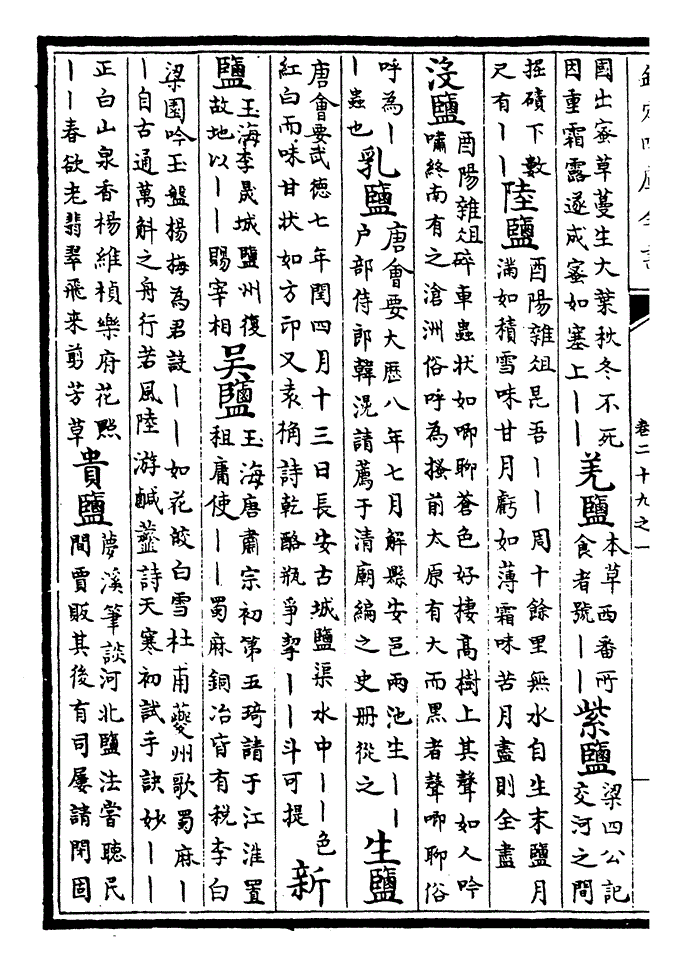 欽定四庫全書
卷二十九之一
國出蜜草蔓生大葉秋冬不死
因重霜露遂成蜜如塞上丨丨
羌鹽
本草西番所
食者號丨丨
紫鹽
梁四公記
交河之間
掘磧下數
尺有丨丨
陸鹽
酉陽雜俎昆吾丨丨周十餘里無水自生末鹽月
滿如積雪味甘月虧如薄霜味苦月盡則全盡
沒鹽
酉陽雜俎碎車蟲狀如唧聊蒼色好棲高樹上其聲如人吟
嘯終南有之滄洲俗呼為搔前太原有大而黑者聲唧聊俗
呼為丨
丨蟲也
乳鹽
唐會要大歷八年七月解縣安邑兩池生丨丨
户部侍郎韓滉請薦于清廟編之史册從之
生鹽
唐會要武德七年閏四月十三日長安古城鹽渠水中丨丨色
紅白而味甘狀如方印又袁桷詩乾酪瓶爭挈丨丨斗可提
新
鹽
玉海李晟城鹽州復
故地以丨丨賜宰相
吳鹽
玉海唐肅宗初第五琦請于江淮置
租庸使丨丨蜀麻銅冶皆有税李白
梁園吟玉盤楊梅為君設丨丨如花皎白雪杜甫夔州歌蜀麻丨
丨自古通萬斛之舟行若風陸游鹹虀詩天寒初試手訣妙丨丨
正白山泉香楊維楨樂府花㸃
丨丨春欲老翡翠飛來剪芳草
貴鹽
夢溪筆談河北鹽法嘗聽民
間賈販其後有司屢請閉固